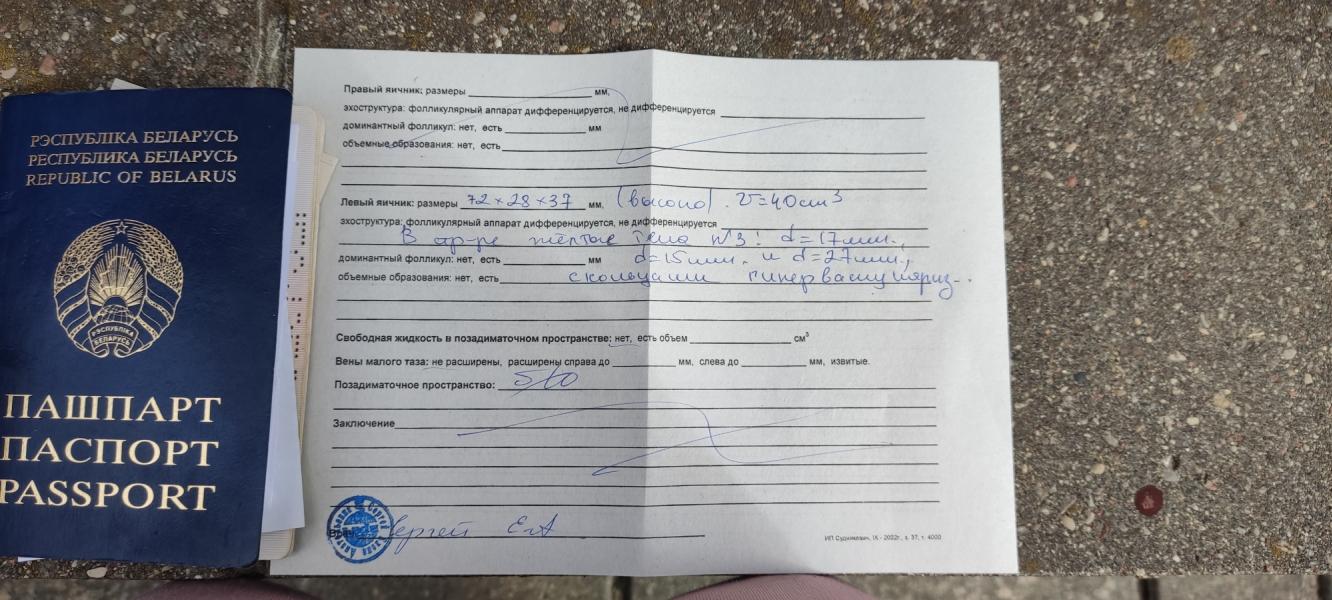 РЭСПУБЛІКА БЕЛАРУСЬ
РЕСПУБЛИКА БЕЛАРУСЬ
REPUBLIC OF BELARUS
РЭСПУБЛІКА
БЕЛАРУСЬ
ПАШПАРТ
ПАСПОРТ
PASSPORT
Правый яичник: размеры мм,
эхоструктура: фолликулярный аппарат дифференцируется, не дифференцируется
доминантный фолликул: нет, есть мм
объемные образования: нет, есть
Левый яичник: размеры 72×28×37 мм, (высоко). V=40cm³
эхоструктура: фолликулярный аппарат дифференцируется, не дифференцируется
В стр-ре жёлтые тела N3: d=17мм.,
доминантный фолликул: нет, есть мм d=15мм. и d=27мм.,
объемные образования: нет, есть с кольцами
Свободная жидкость в позадиматочном пространстве: нет, есть объем см³
Вены малого таза: не расширены, расширены справа до мм, слева до мм, извитые.
Позадиматочное пространство: б/о
Заключение
Врач
ИП Судникевич, IX - 2022г., з. 37, т. 4000